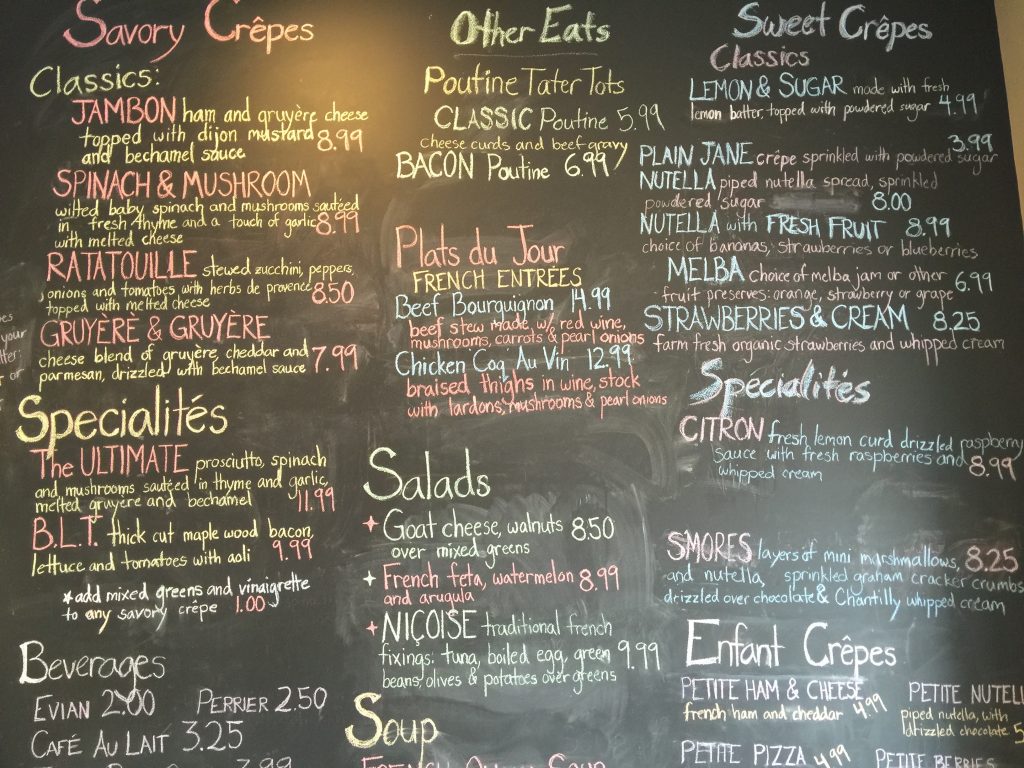 Savory Crêpes
Classics:
JAMBON ham and gruyère cheese
topped with dijon mustard 8.99
and bechamel sauce
SPINACH & MUSHROOM
wilted baby spinach and mushrooms sautéed
in fresh thyme and a touch of garlic 8.99
with melted cheese
RATATOUILLE stewed zucchini, peppers,
onions and tomatoes with herbs de provence 8.50
topped with melted cheese
GRUYÈRÈ & GRUYÈRE
cheese blend of gruyère, cheddar and 7.99
parmesan, drizzled with bechamel sauce
Specialités
The ULTIMATE prosciutto, spinach
and mushrooms sautéed in thyme and garlic,
melted gruyere and bechamel 11.99
B.L.T. thick cut maple wood bacon,
lettuce and tomatoes with aoli 9.99
*add mixed greens and vinaigrette
to any savory crêpe 1.00
Beverages
EVIAN 2.00 PERRIER 2.50
CAFÉ AU LAIT 3.25
Other Eats
Poutine Tater Tots
CLASSIC Poutine 5.99
cheese curds and beef gravy
BACON Poutine 6.99
Plats du Jour
FRENCH ENTRÉES
Beef Bourguignon 14.99
beef stew made w/ red wine,
mushrooms, carrots & pearl onions
Chicken Coq Au Vin 12.99
braised thighs in wine, stock
with lardons, mushrooms & pearl onions
Salads
Goat cheese, walnuts 8.50
over mixed greens
French feta, watermelon 8.99
and arugula
NIÇOISE traditional french
fixings: tuna, boiled egg, green 9.99
beans, olives & potatoes over greens
Soup
FRENCH ONION SOUP
Sweet Crêpes
Classics
LEMON & SUGAR made with fresh
lemon batter, topped with powdered sugar 4.99
3.99
PLAIN JANE crêpe sprinkled with powdered sugar
NUTELLA piped nutella spread, sprinkled
powdered sugar 8.00
NUTELLA with FRESH FRUIT 8.99
choice of bananas, strawberries or blueberries
MELBA choice of melba jam or other 6.99
fruit preserves: orange, strawberry or grape
STRAWBERRIES & CREAM 8.25
farm fresh organic strawberries and whipped cream
Spécialités
CITRON fresh lemon curd drizzled raspberry
sauce with fresh raspberries and 8.99
whipped cream
SMORES layers of mini marshmallows, 8.25
and nutella sprinkled graham cracker crumbs
drizzled over chocolate & Chantilly whipped cream
Enfant Crêpes
PETITE HAM & CHEESE
french ham and cheddar 4.99
PETITE NUTELL
piped nutella, with
drizzled chocolate 5
PETITE PIZZA 4.99 PETITE BERRIES